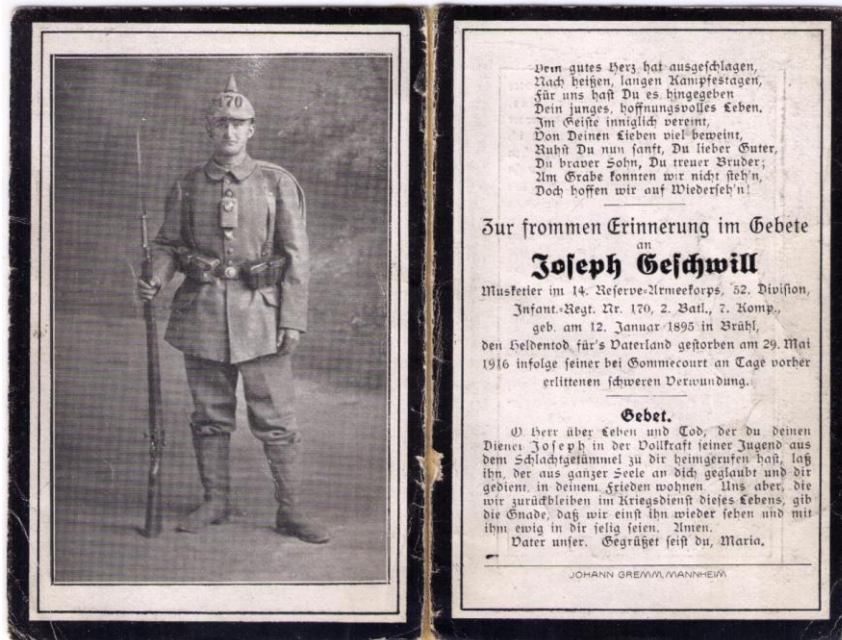 170
Dein gutes Herz hat ausgeschlagen,
Nach heißen, langen Kampfestagen,
Für uns hast Du es hingegeben
Dein junges, hoffnungsvolles Leben.
Im Geiste inniglich vereint,
Von Deinen Lieben viel beweint,
Ruhst Du nun sanft, Du lieber Guter,
Du braver Sohn, Du treuer Bruder;
Am Grabe konnten wir nicht steh'n,
Doch hoffen wir auf Wiederseh'n!
Zur frommen Erinnerung im Gebete
an
Joseph Geschwill
Musketier im 14. Reserve-Armeekorps, 52. Division,
Infant.-Regt. Nr. 170, 2. Batl., 7. Komp.,
geb. am 12. Januar 1895 in Brühl,
den Heldentod für's Vaterland gestorben am 29. Mai
1916 infolge seiner bei Gommecourt am Tage vorher
erlittenen schweren Verwundung.
Gebet.
O Herr über Leben und Tod, der du deinen
Diener Joseph in der Vollkraft seiner Jugend aus
dem Schlachtgetümmel zu dir heimgerufen hast, laß
ihn, der aus ganzer Seele an dich geglaubt und dir
gedient, in deinem Frieden wohnen. Uns aber, die
wir zurückbleiben im Kriegsdienst dieses Lebens, gib
die Gnade, daß wir einst ihn wieder sehen und mit
ihm ewig in dir selig seien. Amen.
Vater unser. Gegrüßet seist du, Maria.
JOHANN GREMM, MANNHEIM